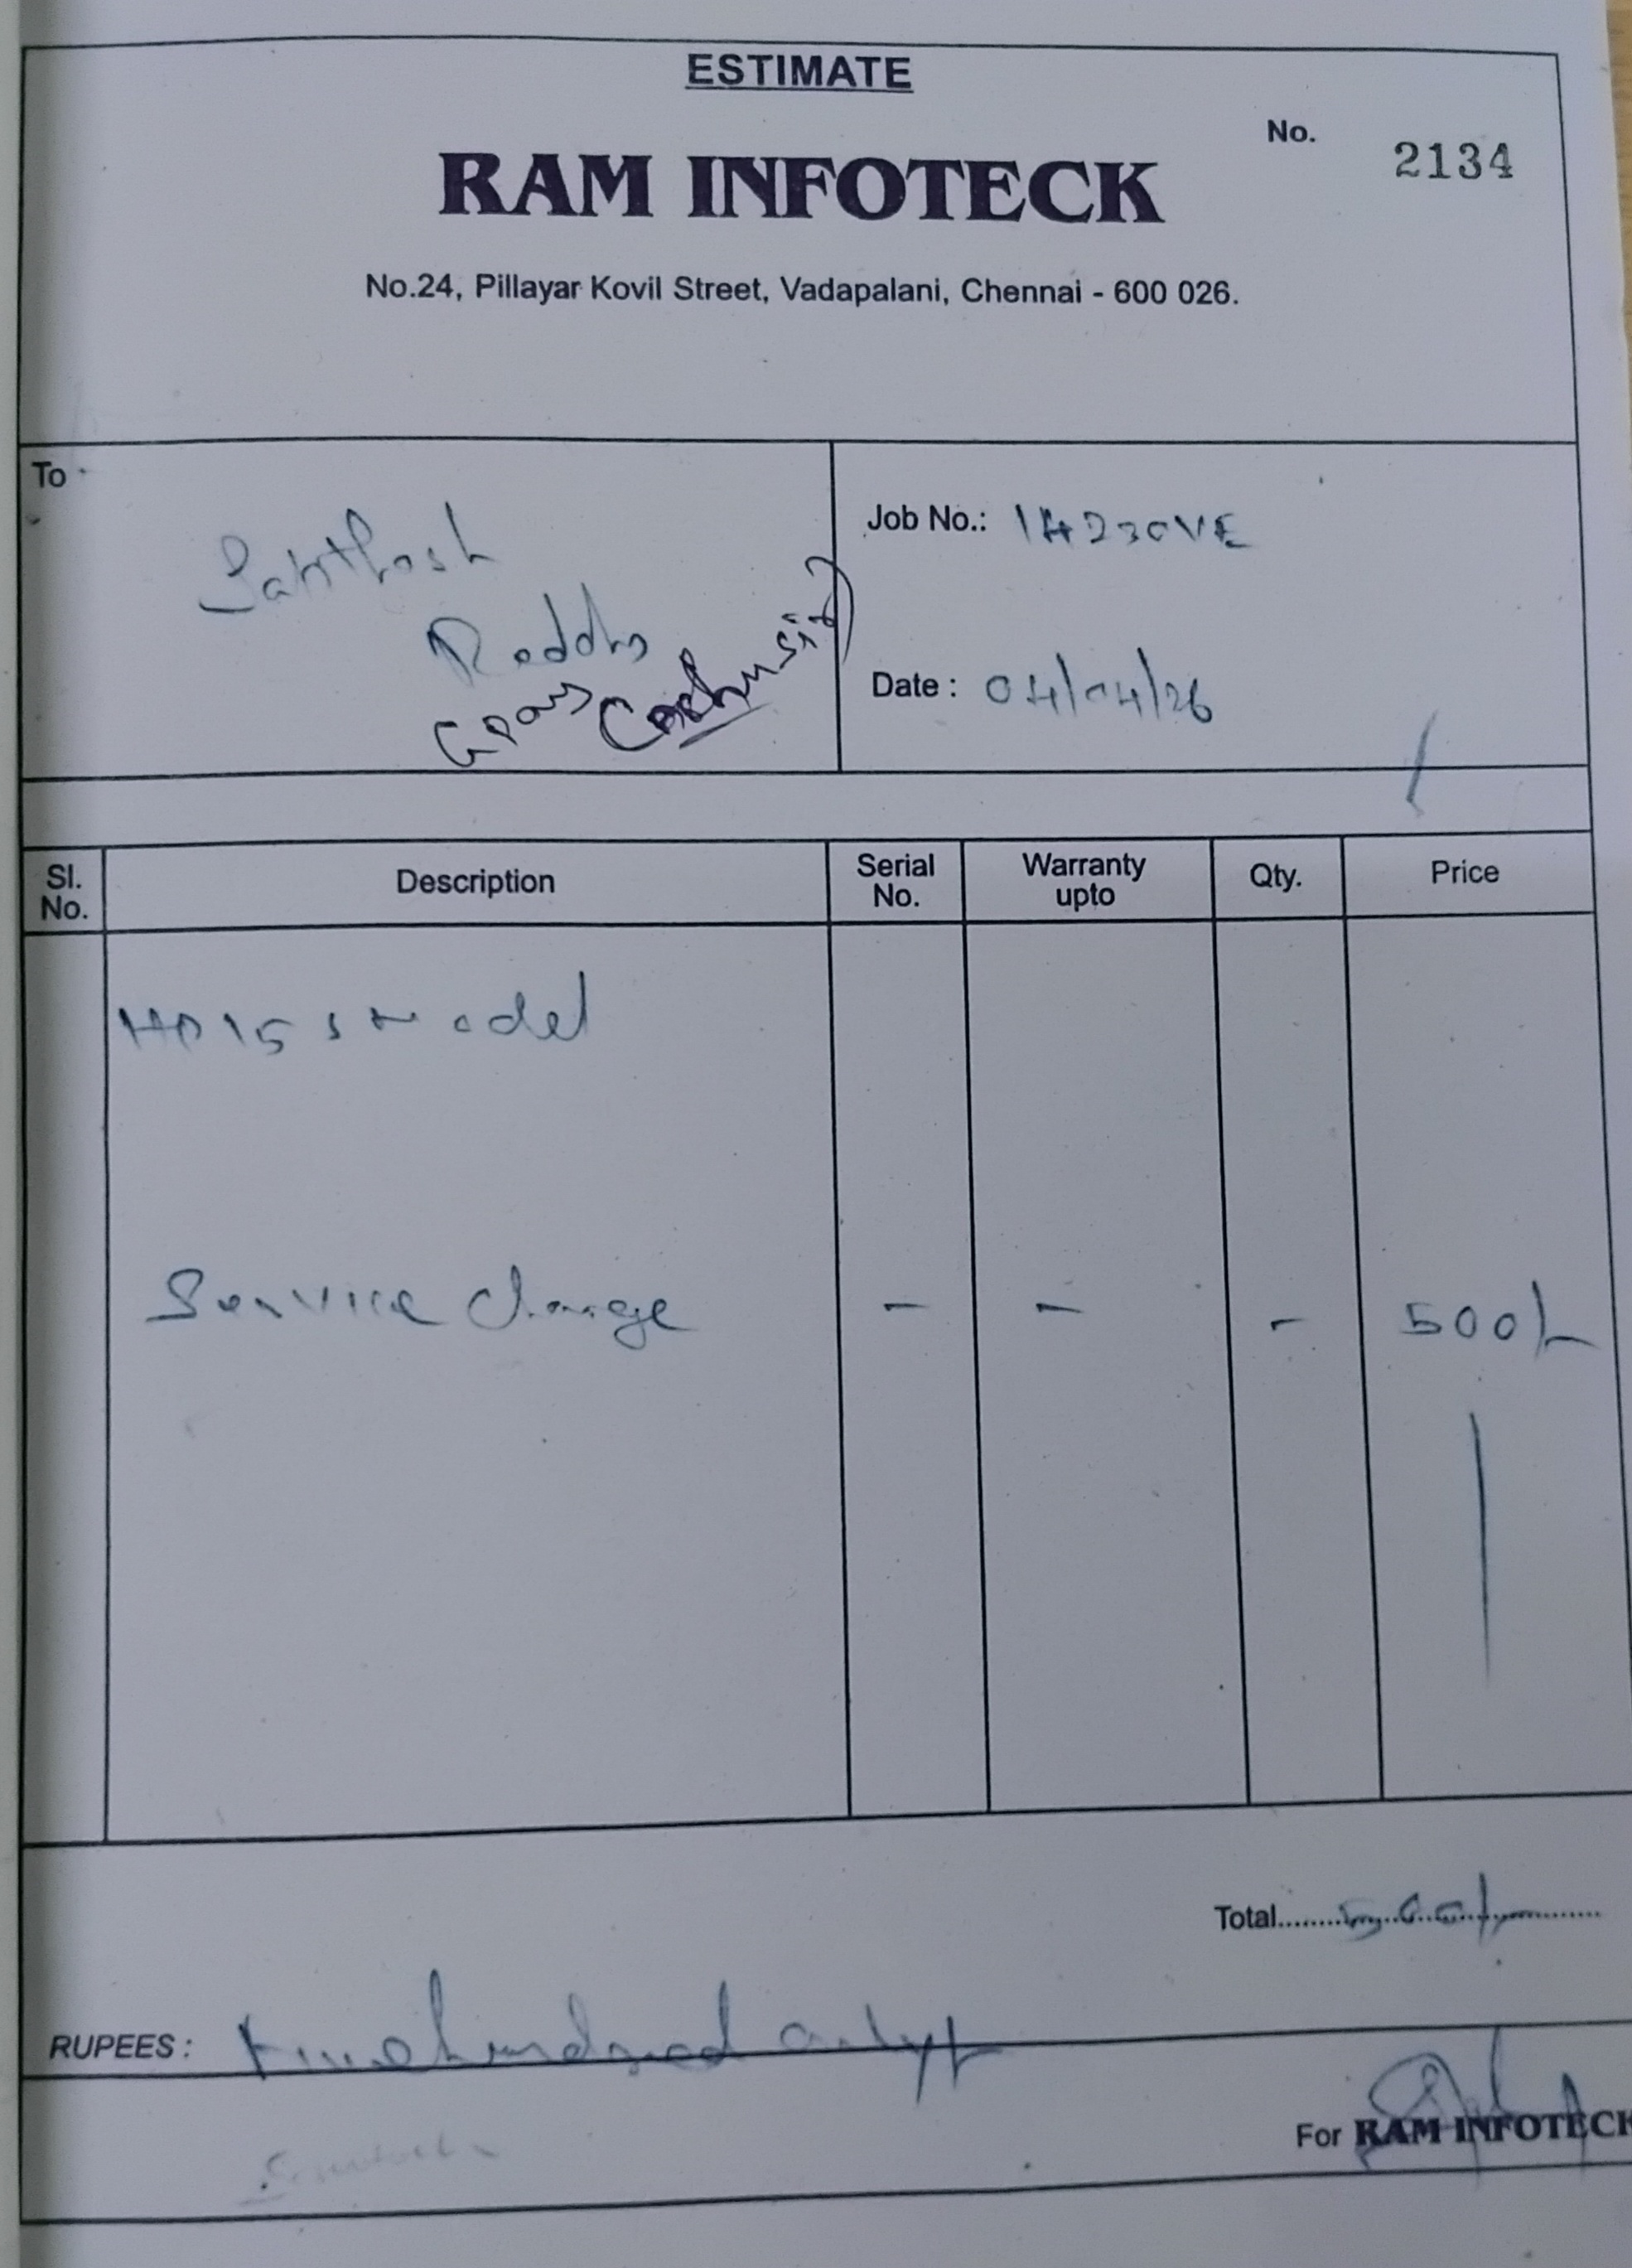 ESTIMATE
No. 2134
RAM INFOTECK
No.24, Pillayar Kovil Street, Vadapalani, Chennai - 600 026.
To
Santhosh
Reddy
Job No.: 14230VE
Date : 04/04/26
Sl. No. Description Serial No. Warranty upto Qty. Price
HP 15 s model
Service charge - - - 500/-
Total 500/-
RUPEES : Five hundred only
For RAM INFOTECK